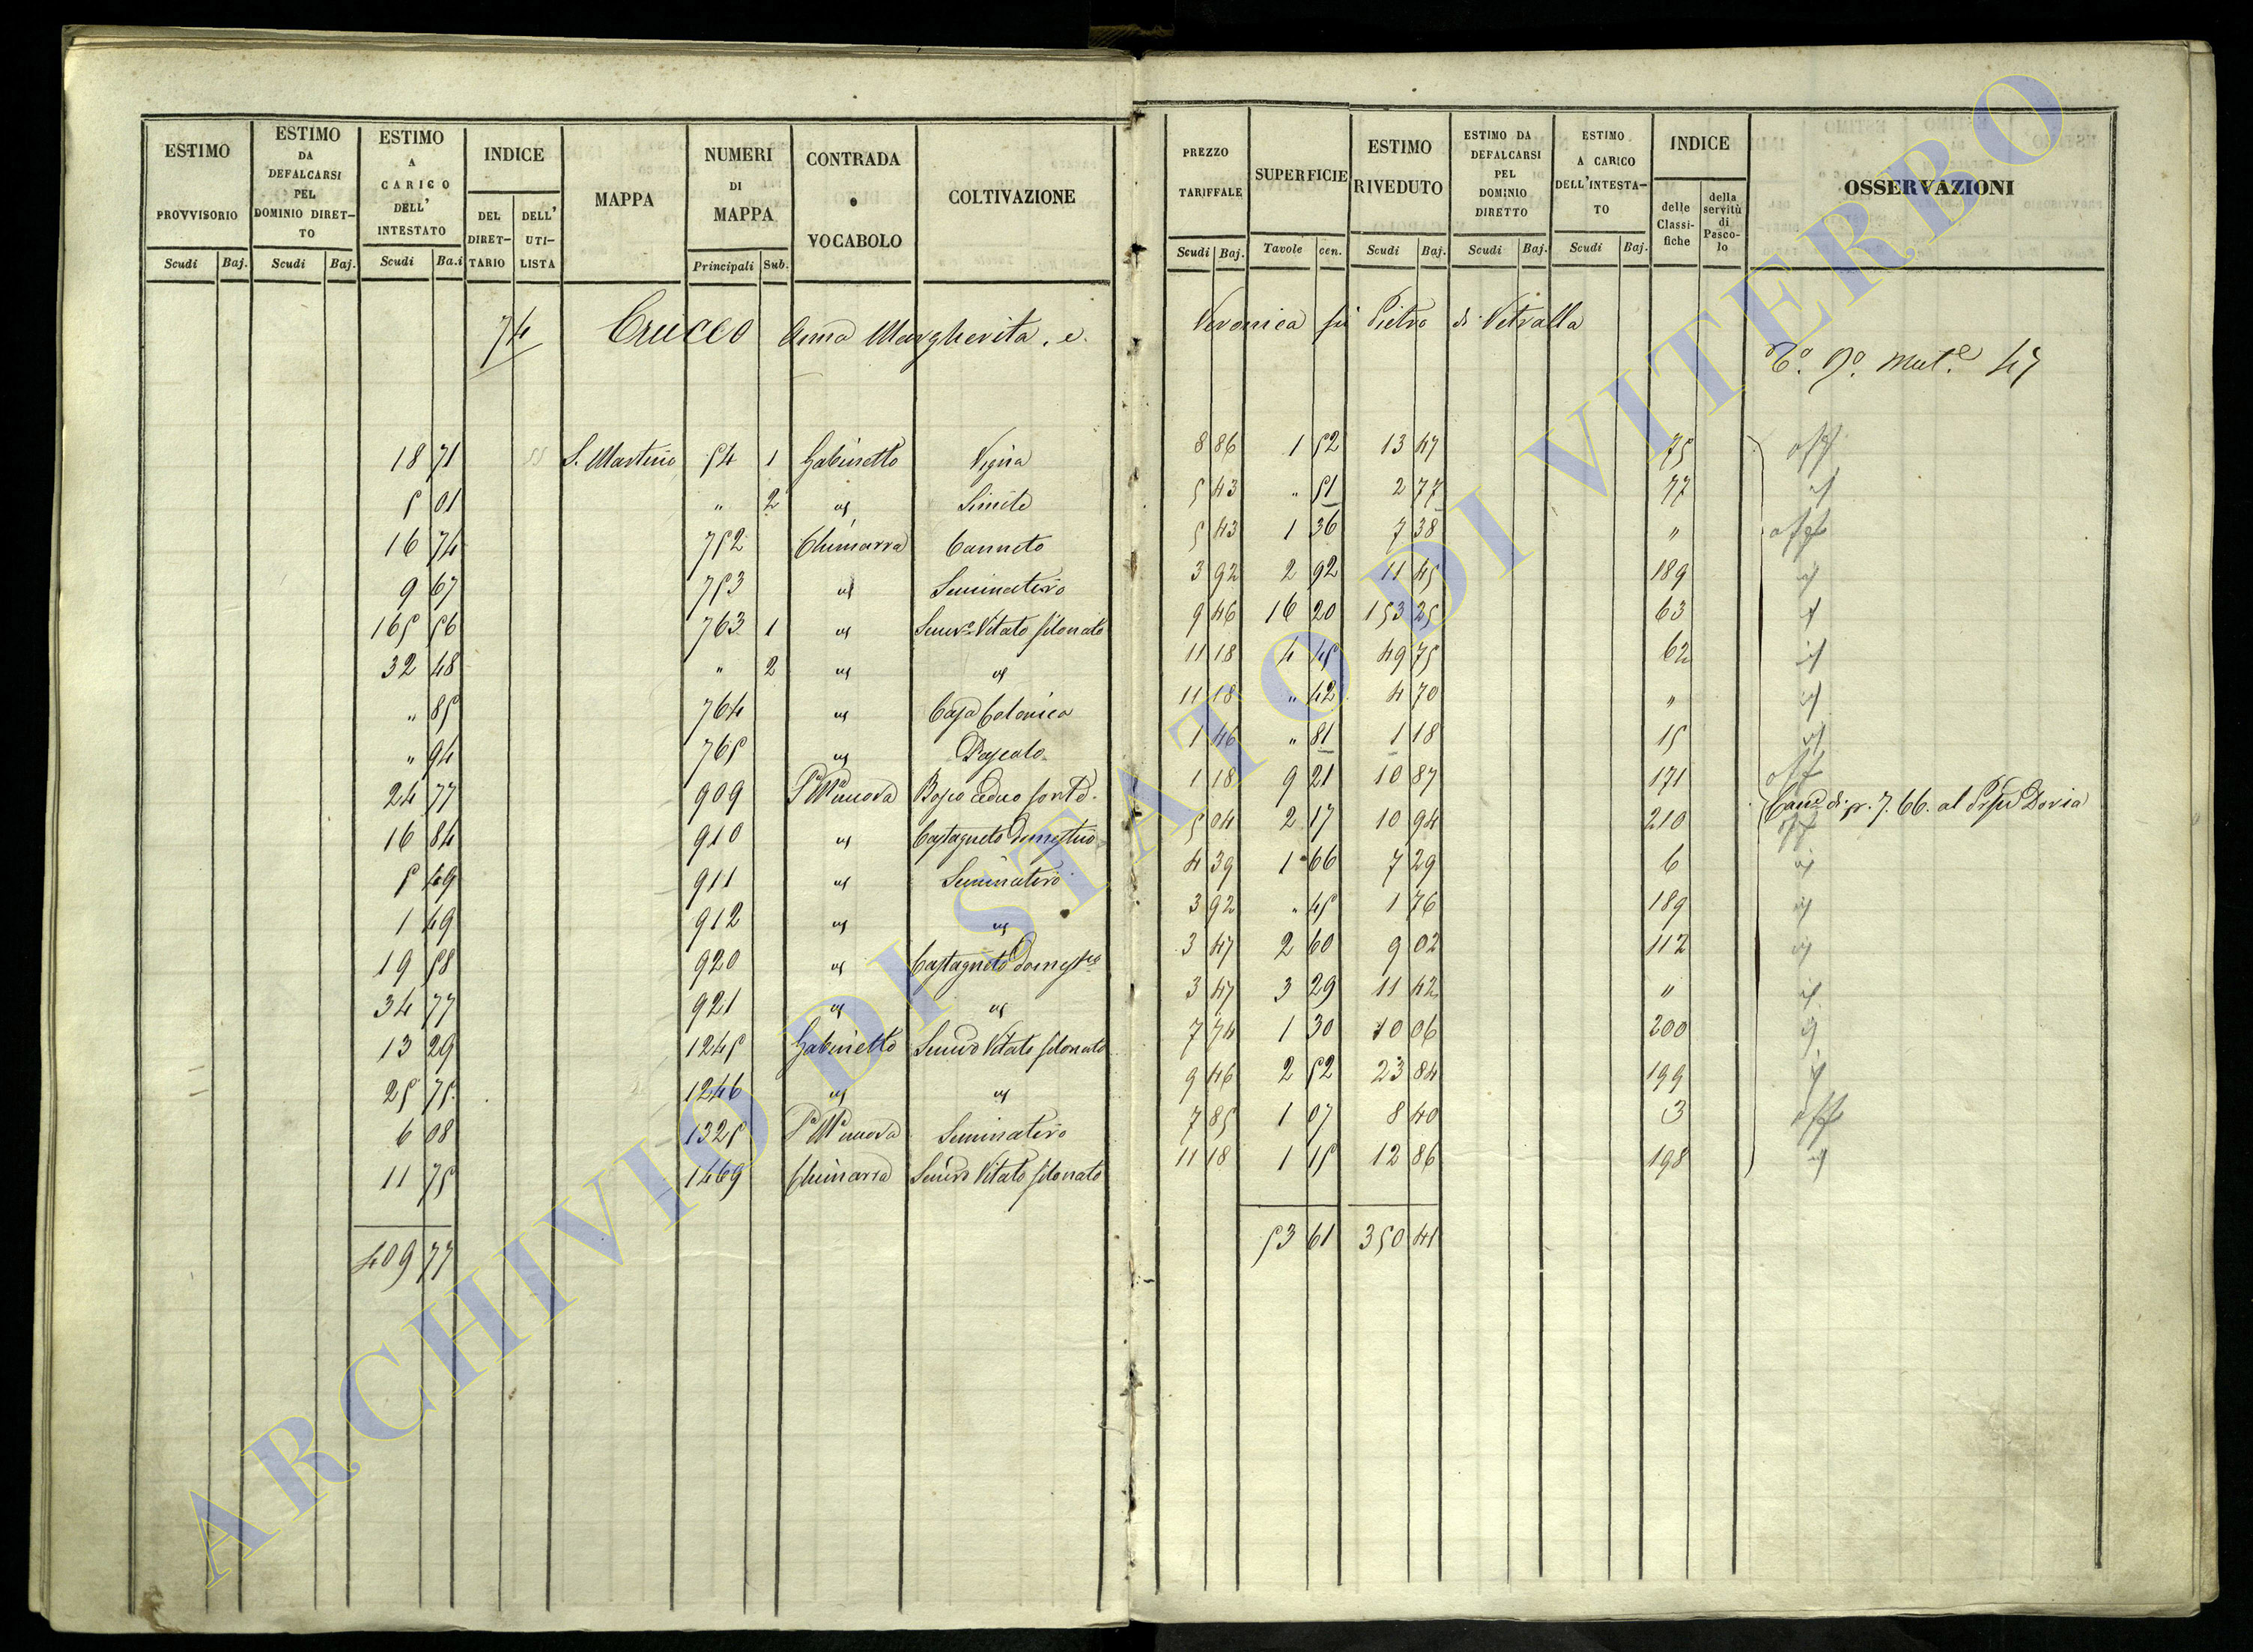 ESTIMO PROVVISORIO | ESTIMO DA DEFALCARSI PEL DOMINIO DIRETTO | ESTIMO A CARICO DELL' INTESTATO | INDICE | MAPPA | NUMERI DI MAPPA | CONTRADA o VOCABOLO | COLTIVAZIONE | PREZZO TARIFFALE | SUPERFICIE | ESTIMO RIVEDUTO | ESTIMO DA DEFALCARSI PEL DOMINIO DIRETTO | ESTIMO A CARICO DELL'INTESTATO | INDICE | OSSERVAZIONI
DEL DIRETTARIO | DELL' UTILISTA | delle Classifiche | della servitù di Pascolo
Scudi | Baj. | Scudi | Baj. | Scudi | Ba.i | Principali | Sub. | Scudi | Baj. | Tavole | cen. | Scudi | Baj. | Scudi | Baj. | Scudi | Baj.
74 Crucco Anna Margherita, e Veronica fù Pietro di Vetralla
47
18 71 S. Martino 54 1 Gabinetto Vigna 8 86 1 52 13 47 75
5 01 " 2 Simile 5 43 " 51 2 77 77
16 74 752 Chimarra Canneto 5 43 1 36 7 38 "
9 67 753 Seminativo 3 92 2 92 11 45 189
165 56 763 1 Semvo Vitato filonato 9 46 16 20 153 25 63
32 48 " 2 11 18 4 45 49 75 62
" 85 764 Casa Colonica 11 18 " 42 4 70 "
" 94 765 Pascolo 1 46 " 81 1 18 15
24 77 909 Bosco ceduo forte 1 18 9 21 10 87 171
16 84 910 Castagneto domestico 5 04 2 17 10 94 210
5 49 911 Seminativo 4 39 1 66 7 29 6
1 49 912 3 92 " 45 1 76 189
19 58 920 Castagneto domestico 3 47 2 60 9 02 112
34 77 921 3 47 3 29 11 42 "
13 29 1245 Gabinetto Semivo Vitato filonato 7 74 1 30 10 06 200
25 75 1246 9 46 2 52 23 84 199
6 08 1325 Seminativo 7 85 1 07 8 40 3
11 75 1469 Chimarra Semivo Vitato filonato 11 18 1 15 12 86 198
7.66. al Doria
409 77 53 61 350 41
ARCHIVIO DI STATO DI VITERBO